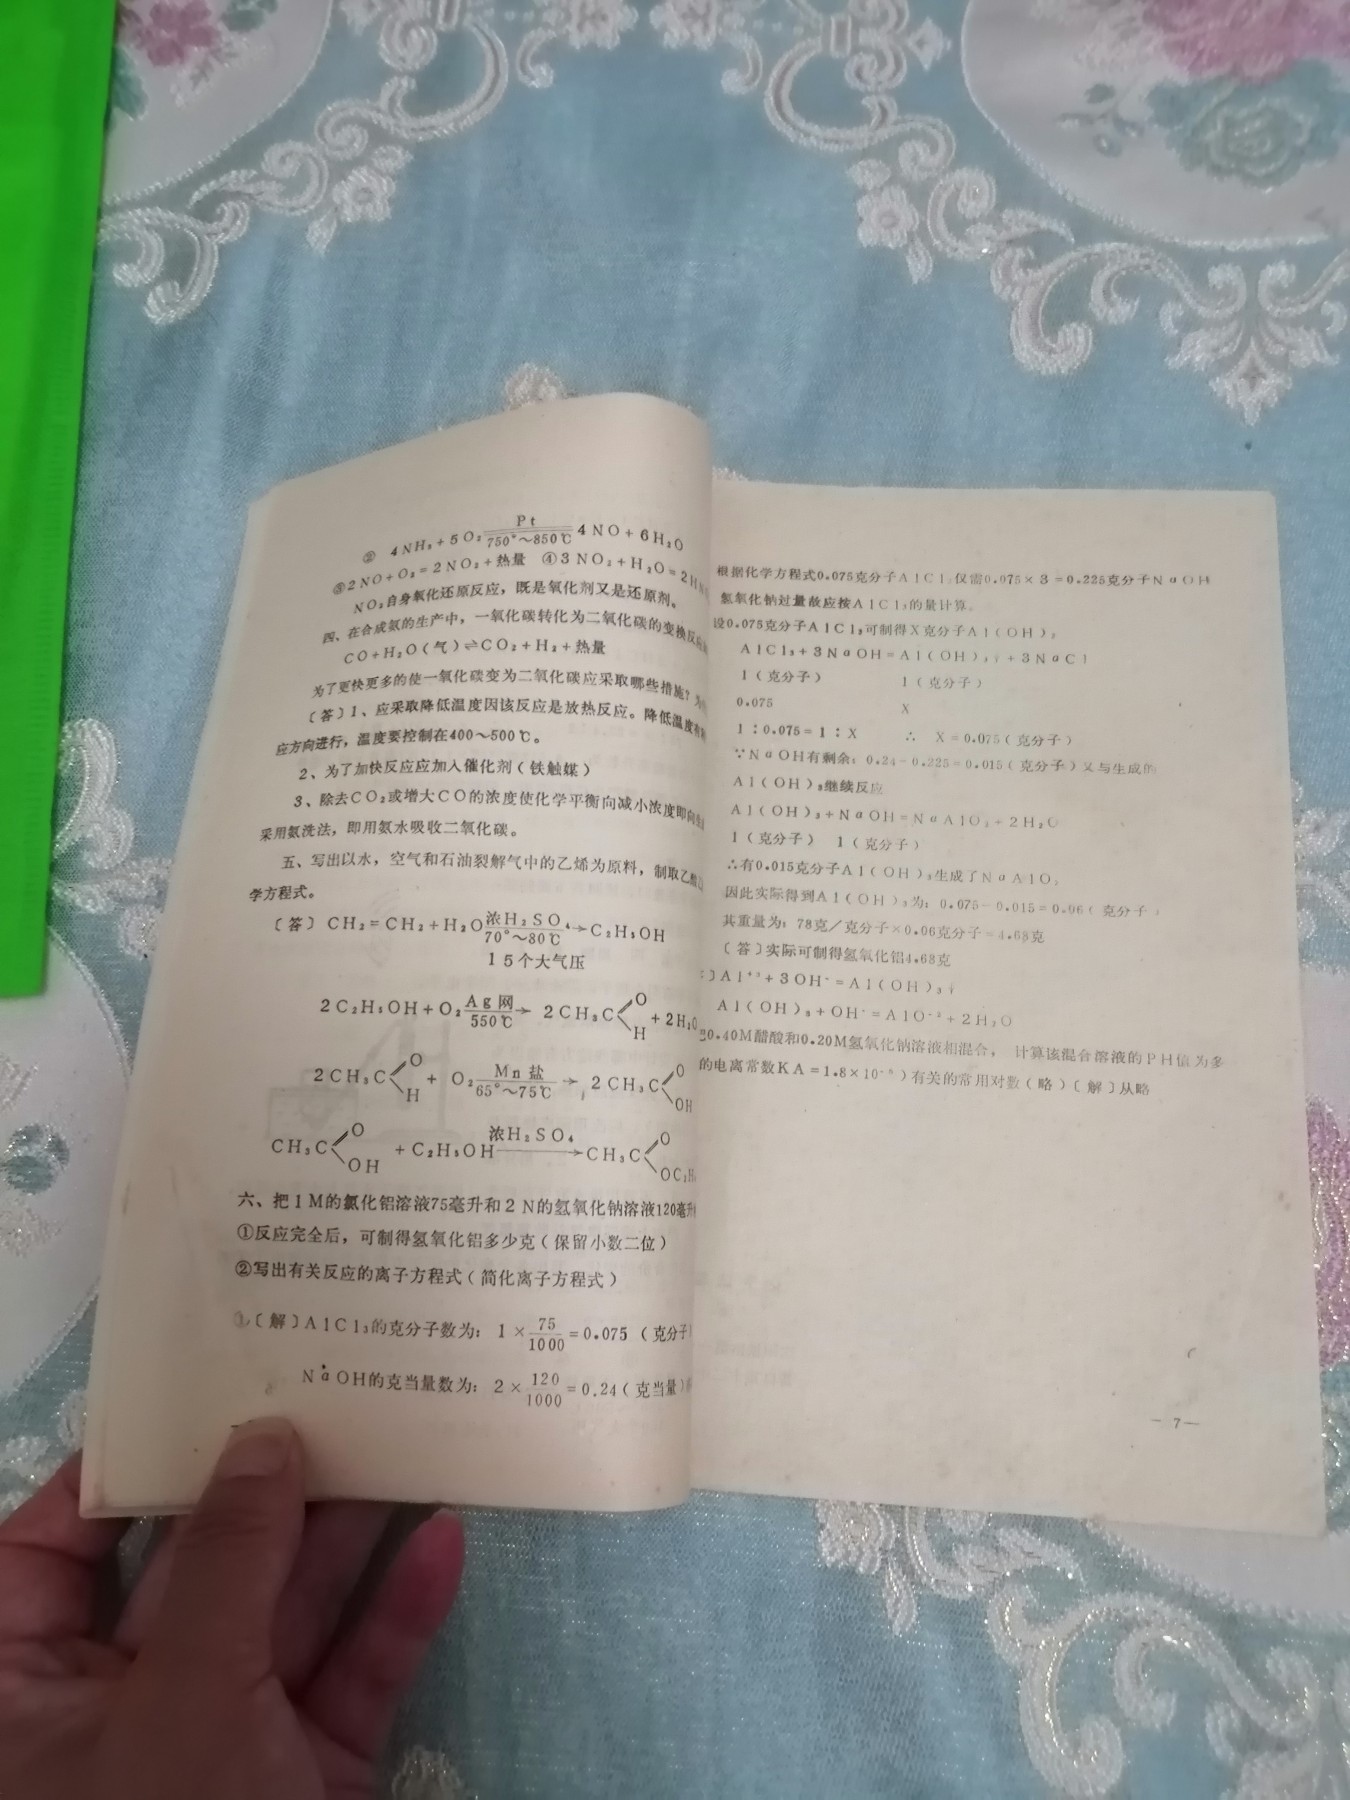 Pt
② 4NH₃+5O₂ 750°~850℃ 4NO+6H₂O
③2NO+O₂=2NO₂+热量 ④3NO₂+H₂O=2H
NO₂自身氧化还原反应，既是氧化剂又是还原剂。
四、在合成氨的生产中，一氧化碳转化为二氧化碳的变换反应
CO+H₂O(气)⇌CO₂+H₂+热量
为了更快更多的使一氧化碳变为二氧化碳应采取哪些措施？
〔答〕1、应采取降低温度因该反应是放热反应。降低温度有
应方向进行，温度要控制在400～500℃。
2、为了加快反应应加入催化剂（铁触媒）
3、除去CO₂或增大CO的浓度使化学平衡向减小浓度即向
采用氨洗法，即用氨水吸收二氧化碳。
五、写出以水，空气和石油裂解气中的乙烯为原料，制取乙酸
学方程式。
〔答〕 CH₂=CH₂+H₂O 浓H₂SO₄ → C₂H₅OH
70°～80℃
15个大气压
2C₂H₅OH+O₂ Ag网 → 2CH₃C O H +2H₂O
550℃
2CH₃C O H + O₂ Mn盐 → 2CH₃C O OH
65°～75℃
CH₃C O OH +C₂H₅OH 浓H₂SO₄ → CH₃C O OC
六、把1M的氯化铝溶液75毫升和2N的氢氧化钠溶液120毫升
①反应完全后，可制得氢氧化铝多少克（保留小数二位）
②写出有关反应的离子方程式（简化离子方程式）
①〔解〕AlCl₃的克分子数为：1×75/1000=0.075（克分子
NaOH的克当量数为：2×120/1000=0.24（克当量）
根据化学方程式0.075克分子AlCl₃仅需0.075×3=0.225克分子NaOH
氢氧化钠过量故应按AlCl₃的量计算。
设0.075克分子AlCl₃可制得X克分子Al(OH)₃
AlCl₃+3NaOH=Al(OH)₃↓+3NaCl
1（克分子） 1（克分子）
0.075 X
1：0.075=1：X ∴ X=0.075（克分子）
∵NaOH有剩余：0.24-0.225=0.015（克分子）又与生成的
Al(OH)₃继续反应
Al(OH)₃+NaOH=NaAlO₂+2H₂O
1（克分子） 1（克分子）
∴有0.015克分子Al(OH)₃生成了NaAlO₂
因此实际得到Al(OH)₃为：0.075-0.015=0.06（克分子）
其重量为：78克／克分子×0.06克分子=4.68克
〔答〕实际可制得氢氧化铝4.68克
〕Al⁺³+3OH⁻=Al(OH)₃↓
Al(OH)₃+OH⁻=AlO⁻₂+2H₂O
0.40M醋酸和0.20M氢氧化钠溶液相混合， 计算该混合溶液的PH值为多
的电离常数KA=1.8×10⁻⁵）有关的常用对数（略）〔解〕从略
—7—